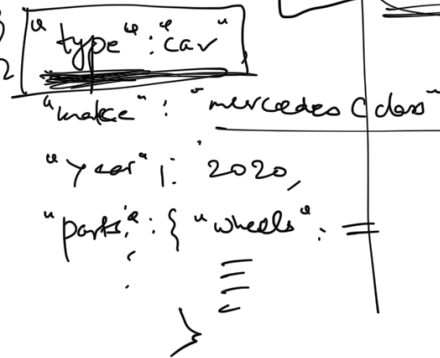 "type" : "car"
2
"make" : "mercedes C class"
"year" : 2020,
"parts" : { "wheels" : =
}